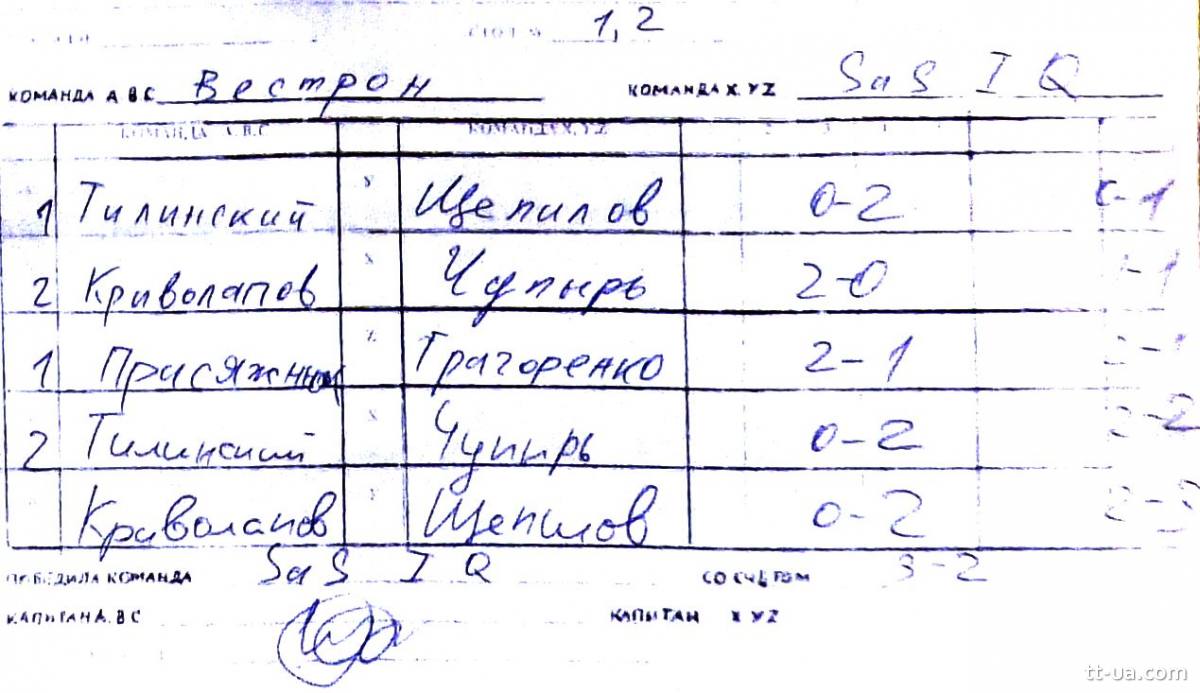 1,2
КОМАНДА А В С Вестрон КОМАНДА X.YZ SaS I Q
КОМАНДА А.В.С КОМАНДА X.YZ
1 Тилинский Щепилов 0-2 0-1
2 Криволапов Чупырь 2-0 1-1
1 Присяжнюк Грагоренко 2-1 2-1
2 Тилинский Чупырь 0-2 2-2
Криволапов Щепилов 0-2 2-3
ПОБЕДИЛА КОМАНДА SaS I Q СО СЧЕТОМ 3-2
КАПИТАН А.ВС КАПИТАН X YZ
tt-ua.com